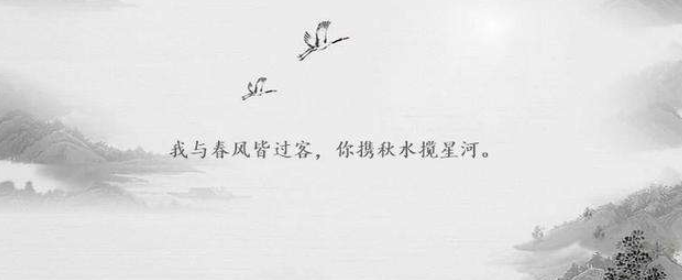 我与春风皆过客，你携秋水揽星河。